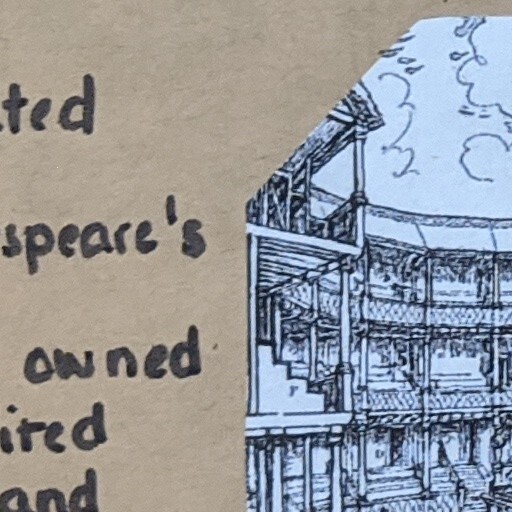 ted
speare's
owned
ited
and